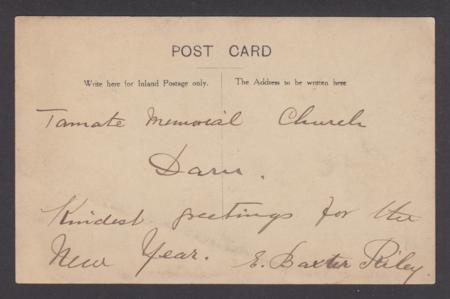 POST CARD
Write here for Inland Postage only. The Address to be written here
Tamate Memorial Church
Daru.
Kindest greetings for the
New Year. E. Baxter Riley.